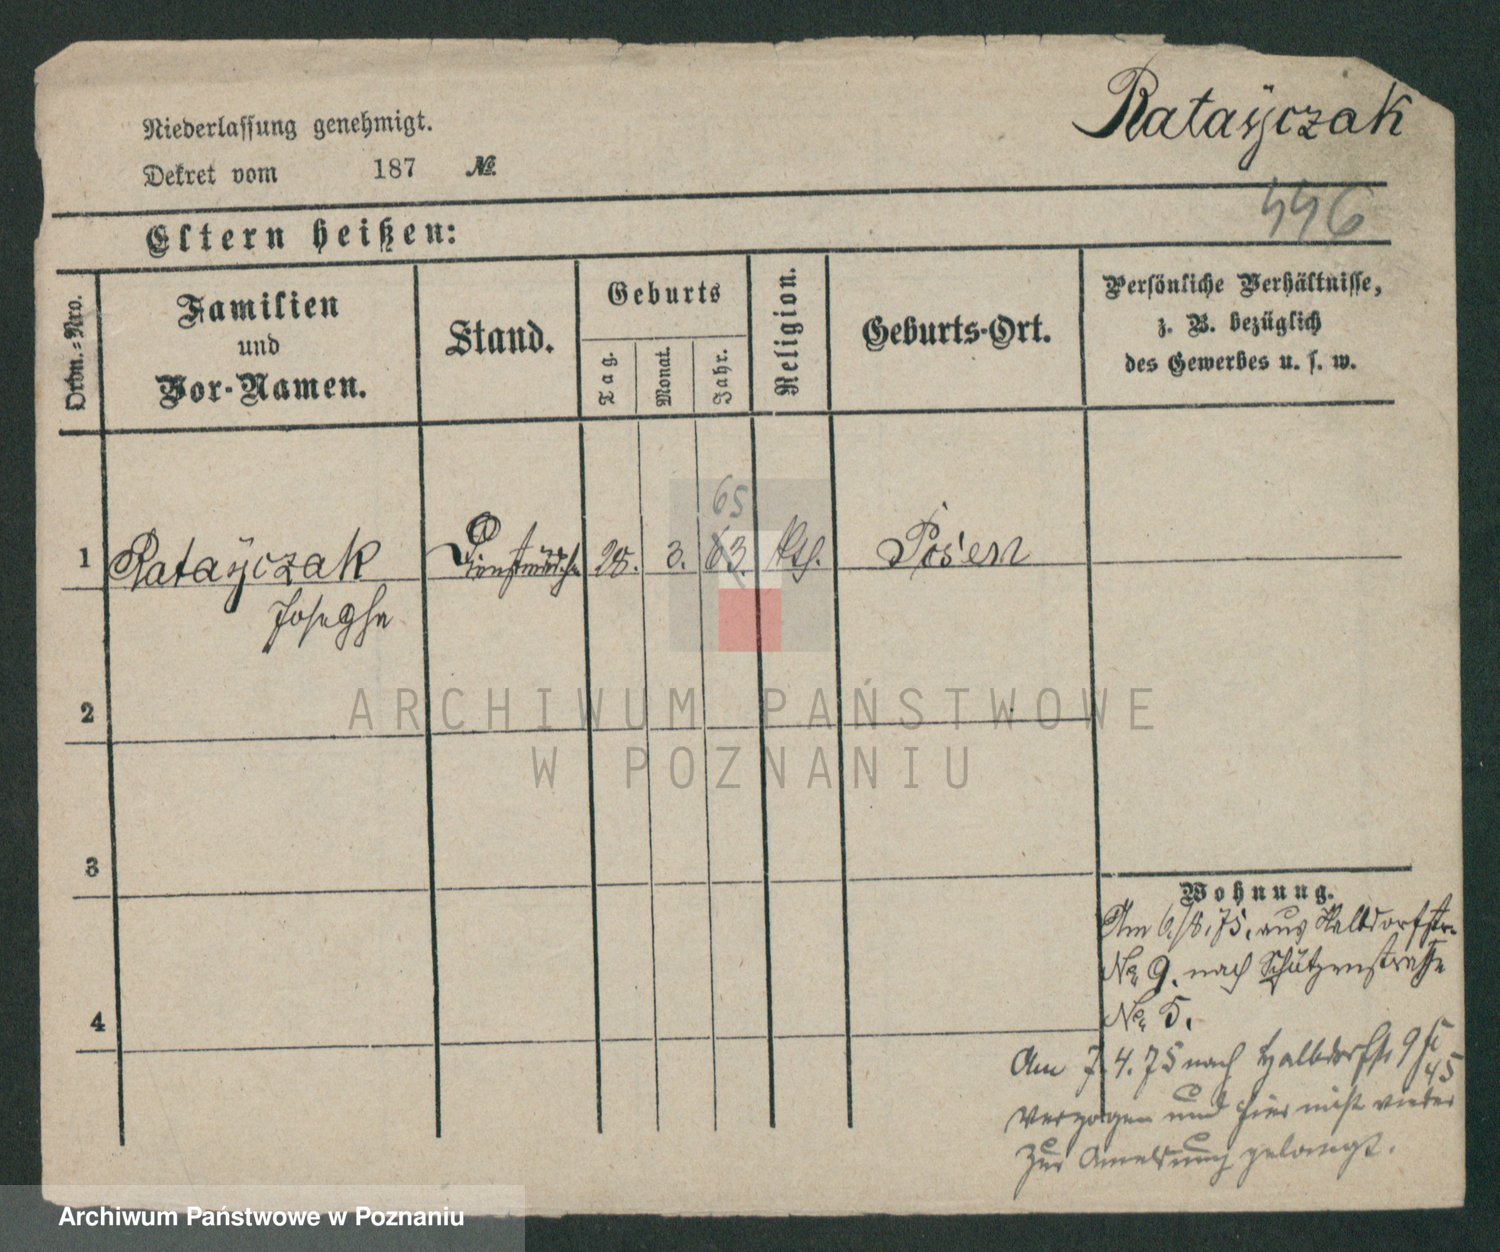 Ratayczak
Niederlassung genehmigt.
Dekret vom 187 №.
446
Eltern heißen:
Ordn.-Nro.
Familien
und
Vor-Namen.
Stand.
Geburts
Tag.
Monat.
Jahr.
Religion.
Geburts-Ort.
Persönliche Verhältnisse,
z. B. bezüglich
des Gewerbes u. s. w.
65
1 Ratayczak Dienstmädch. 28. 3. 63. Kth. Posen
Josepha
2
ARCHIWUM PAŃSTWOWE
W POZNANIU
3
Wohnung.
Am 6./8. 75. aus Halbdorfstr.
No 9. nach Schützenstraße
No 5.
4
Am 7.4.75 nach Halbdorfstr 9
45
verzogen und hier nicht wieder
zur Anmeldung gelangt.
Archiwum Państwowe w Poznaniu